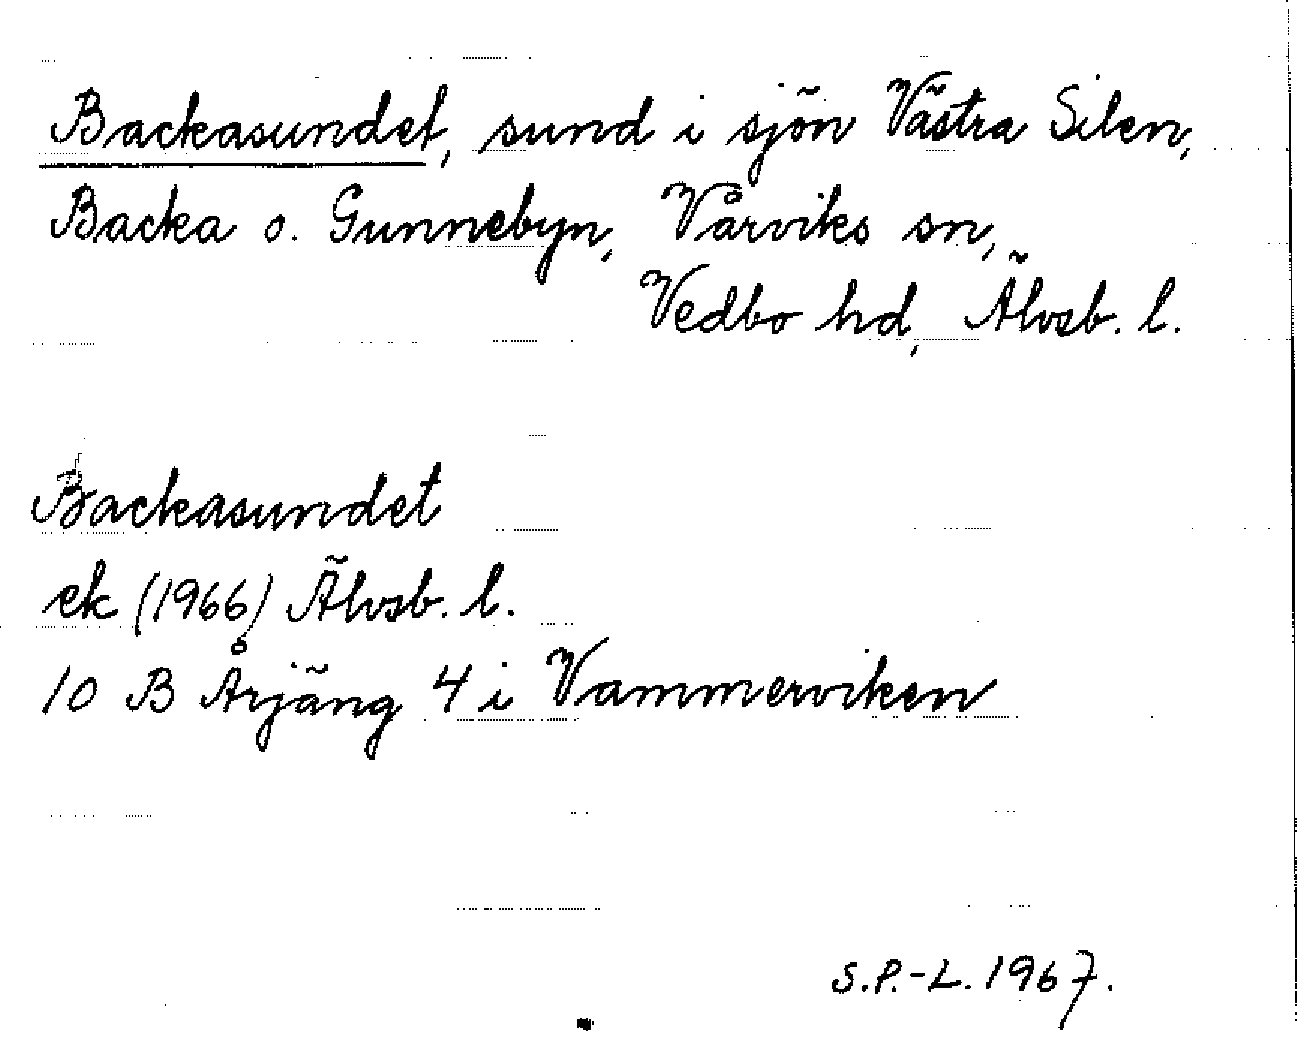 Backasundet, sund i sjön Västra Silen,
Backa o. Gunnebyn, Vårviks sn,
Vedbo hd, Älvsb. l.
Backasundet
ek (1966) Älvsb. l.
10 B Årjäng 4 i Vammerviken
S.P.-L. 1967.